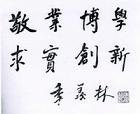 敬業博學
求實創新
季羡林